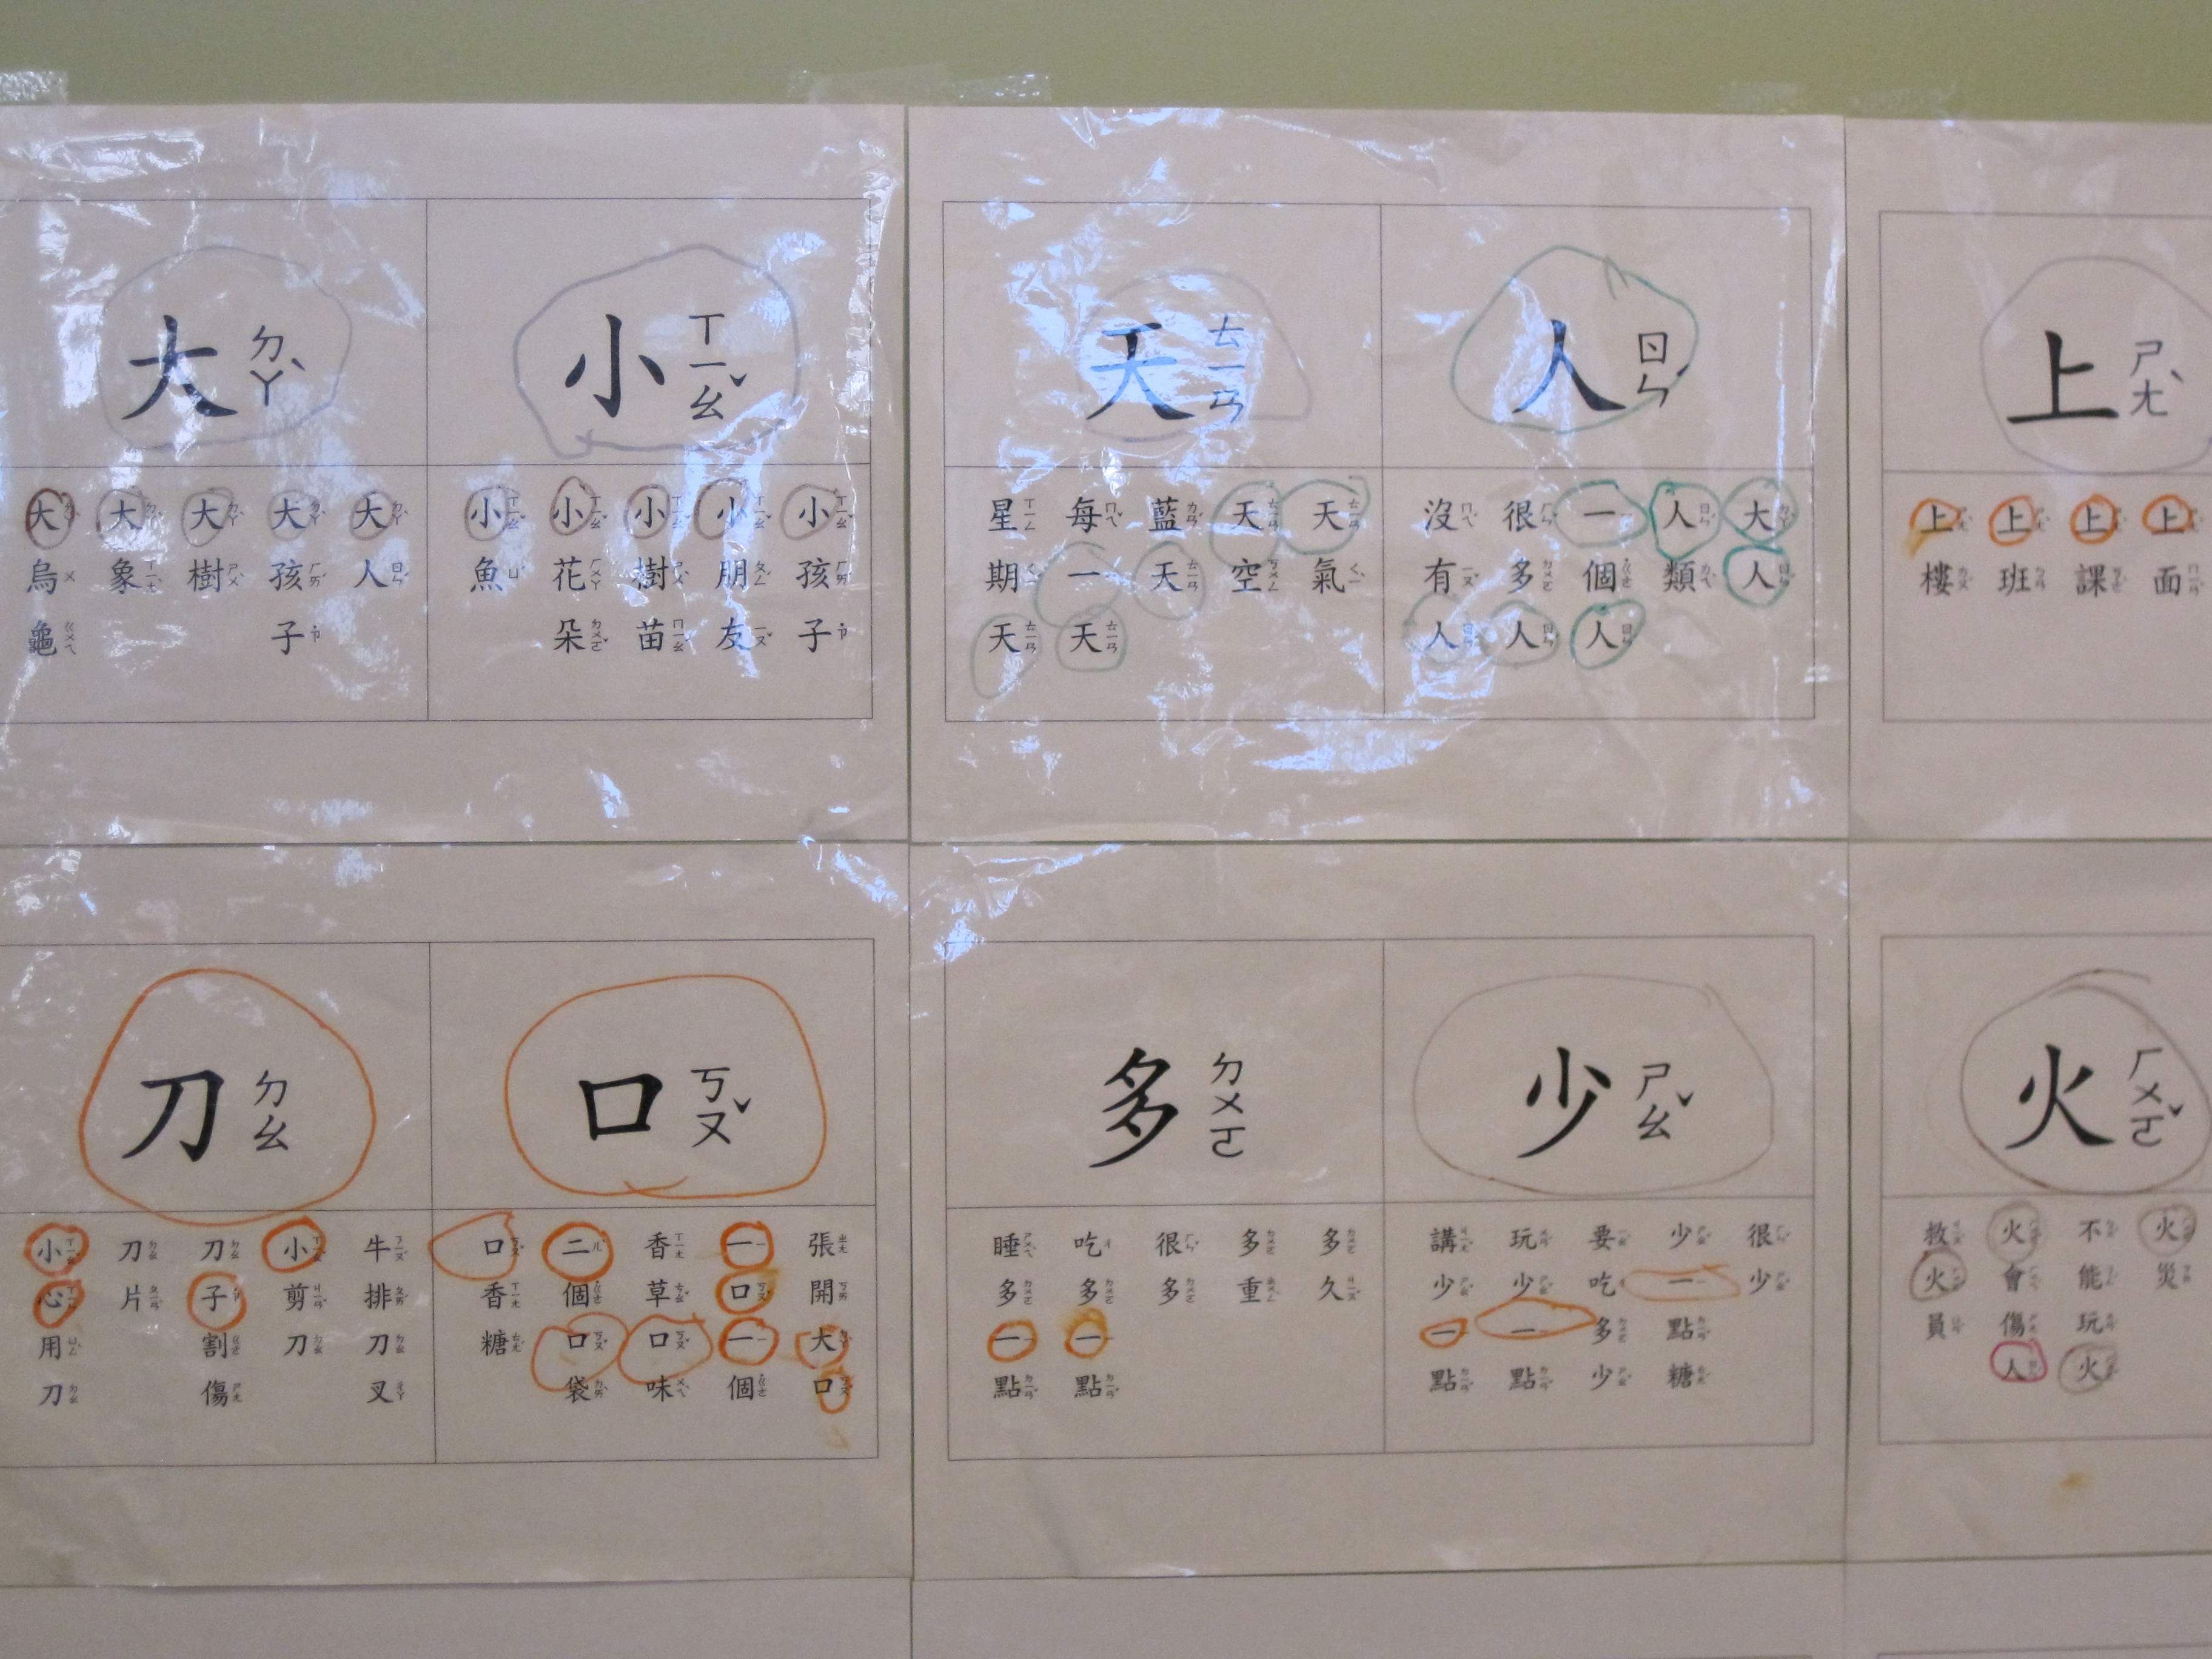 大 ㄉㄚˋ
大人
大孩子
大樹
大象
大烏龜
小 ㄒㄧㄠˇ
小孩子
小朋友
小樹苗
小花朵
小魚
天 ㄊㄧㄢ
天氣
天空
藍天
每一天
星期天
人 ㄖㄣˊ
大人
人類
一個人
很多人
沒有人
上 ㄕㄤˋ
上面
上課
上班
上樓
刀 ㄉㄠ
牛排刀叉
小剪刀
刀子割傷
刀片
小心用刀
口 ㄎㄡˇ
張開大口
一口一個
香草口味
二個口袋
口香糖
多 ㄉㄨㄛ
多久
多重
很多
吃多一點
睡多一點
少 ㄕㄠˇ
很少
少一點糖
要吃多少
玩少一點
講少一點
火 ㄏㄨㄛˇ
火災
不能玩火
火會傷人
救火員